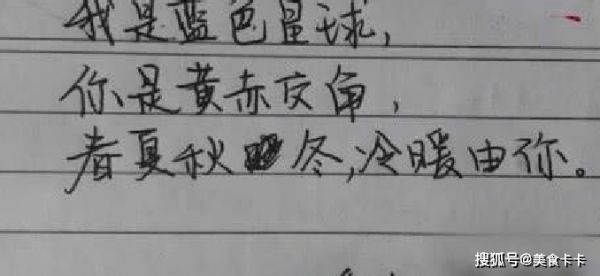 我是蓝色星球，
你是黄赤交角，
春夏秋冬，冷暖由你。
搜狐号@美食卡卡